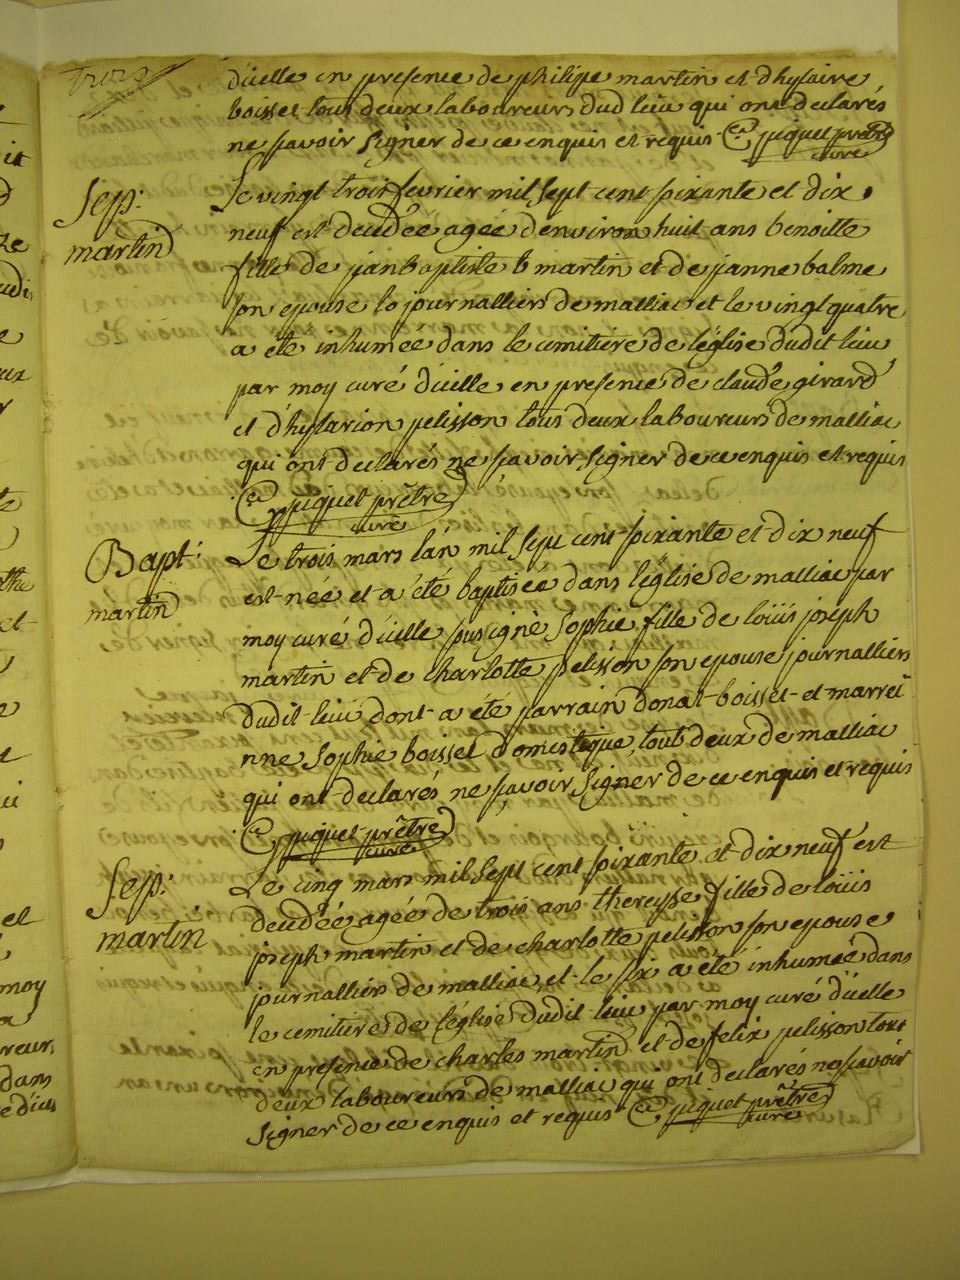 Trois
d'icelle en presence de philipe martin et d'hylaire
boisset tous deux laboureurs dud lieu qui ont declarés
ne savoir signer de ce enquis et requis piquet prêtre
curé
Sep:
martin
Le vingt trois fevrier mil sept cent soixante et dix
neuf est decedée agée d'environ huit ans benoitte
fille de jean baptiste martin et de jeanne balme
son epouse journalliers de malliac et le vingt quatre
a été inhumée dans le cemitiere de l'église dudit lieu
par moy curé d'icelle en presence de claude girard
et d'hylarion pelisson tous deux laboureurs de malliac
qui ont declarés ne savoir signer de ce enquis et requis
piquet prêtre
curé
Bapt:
martin
Le trois mars l'an mil sept cent soixante et dix neuf
est née et a été baptisée dans l'église de malliac par
moy curé d'icelle sousigné Sophie fille de loüis joseph
martin et de charlotte pelisson son epouse journalliers
dudit lieu dont a été parrain donat boisset et marrei
nne Sophie boisset domestique tout deux de malliac
qui ont declarés ne savoir signer de ce enquis et requis
piquet prêtre
curé
Sep:
martin
Le cinq mars mil sept cent soixante et dix neuf est
decedée agée de trois ans thereysse fille de loüis
joseph martin et de charlotte pelisson son epouse
journalliers de malliac et le six a été inhumée dans
le cemitiere de l'église dudit lieu par moy curé d'icelle
en presence de charles martin et de felix pelisson tout
deux laboureurs de malliac qui ont declarés ne savoir
signer de ce enquis et requis piquet prêtre
curé